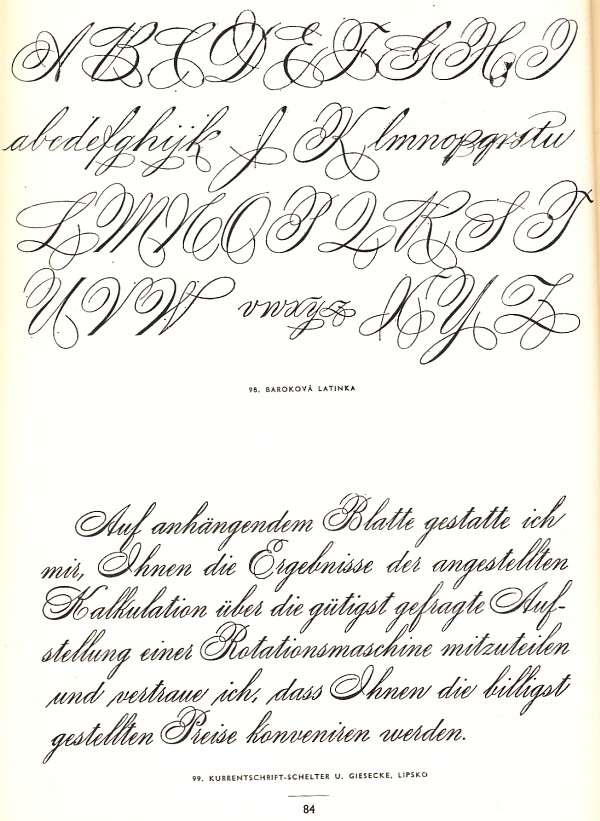 A B C D E F G H I
abcdefghijk J K lmnopqrstu
L M N O P Q R S T
U V W vwxyz X Y Z
98. BAROKOVÁ LATINKA
Auf anhängendem Blatte gestatte ich
mir, Ihnen die Ergebnisse der angestellten
Kalkulation über die gütigst gefragte Auf-
stellung einer Rotationsmaschine mitzuteilen
und vertraue ich, dass Ihnen die billigst
gestellten Preise konveniren werden.
99. KURRENTSCHRIFT-SCHELTER U. GIESECKE, LIPSKO
84